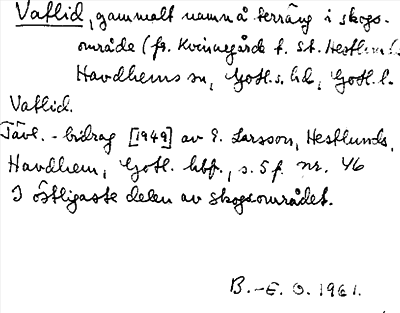 Vatlid, gammalt namn å terräng i skogs-
område (fr. Kvinnegårde t. St. Hestlunds
Havdhems sn, Gotl. s. hd, Gotl. l.
Vatlid.
Tävl. - bidrag [1949] av E. Larsson, Hestlunds,
Havdhem, Gotl. hbf., s. 5 f. nr. 46
I östligaste delen av skogsområdet.
B.-E. O. 1961.